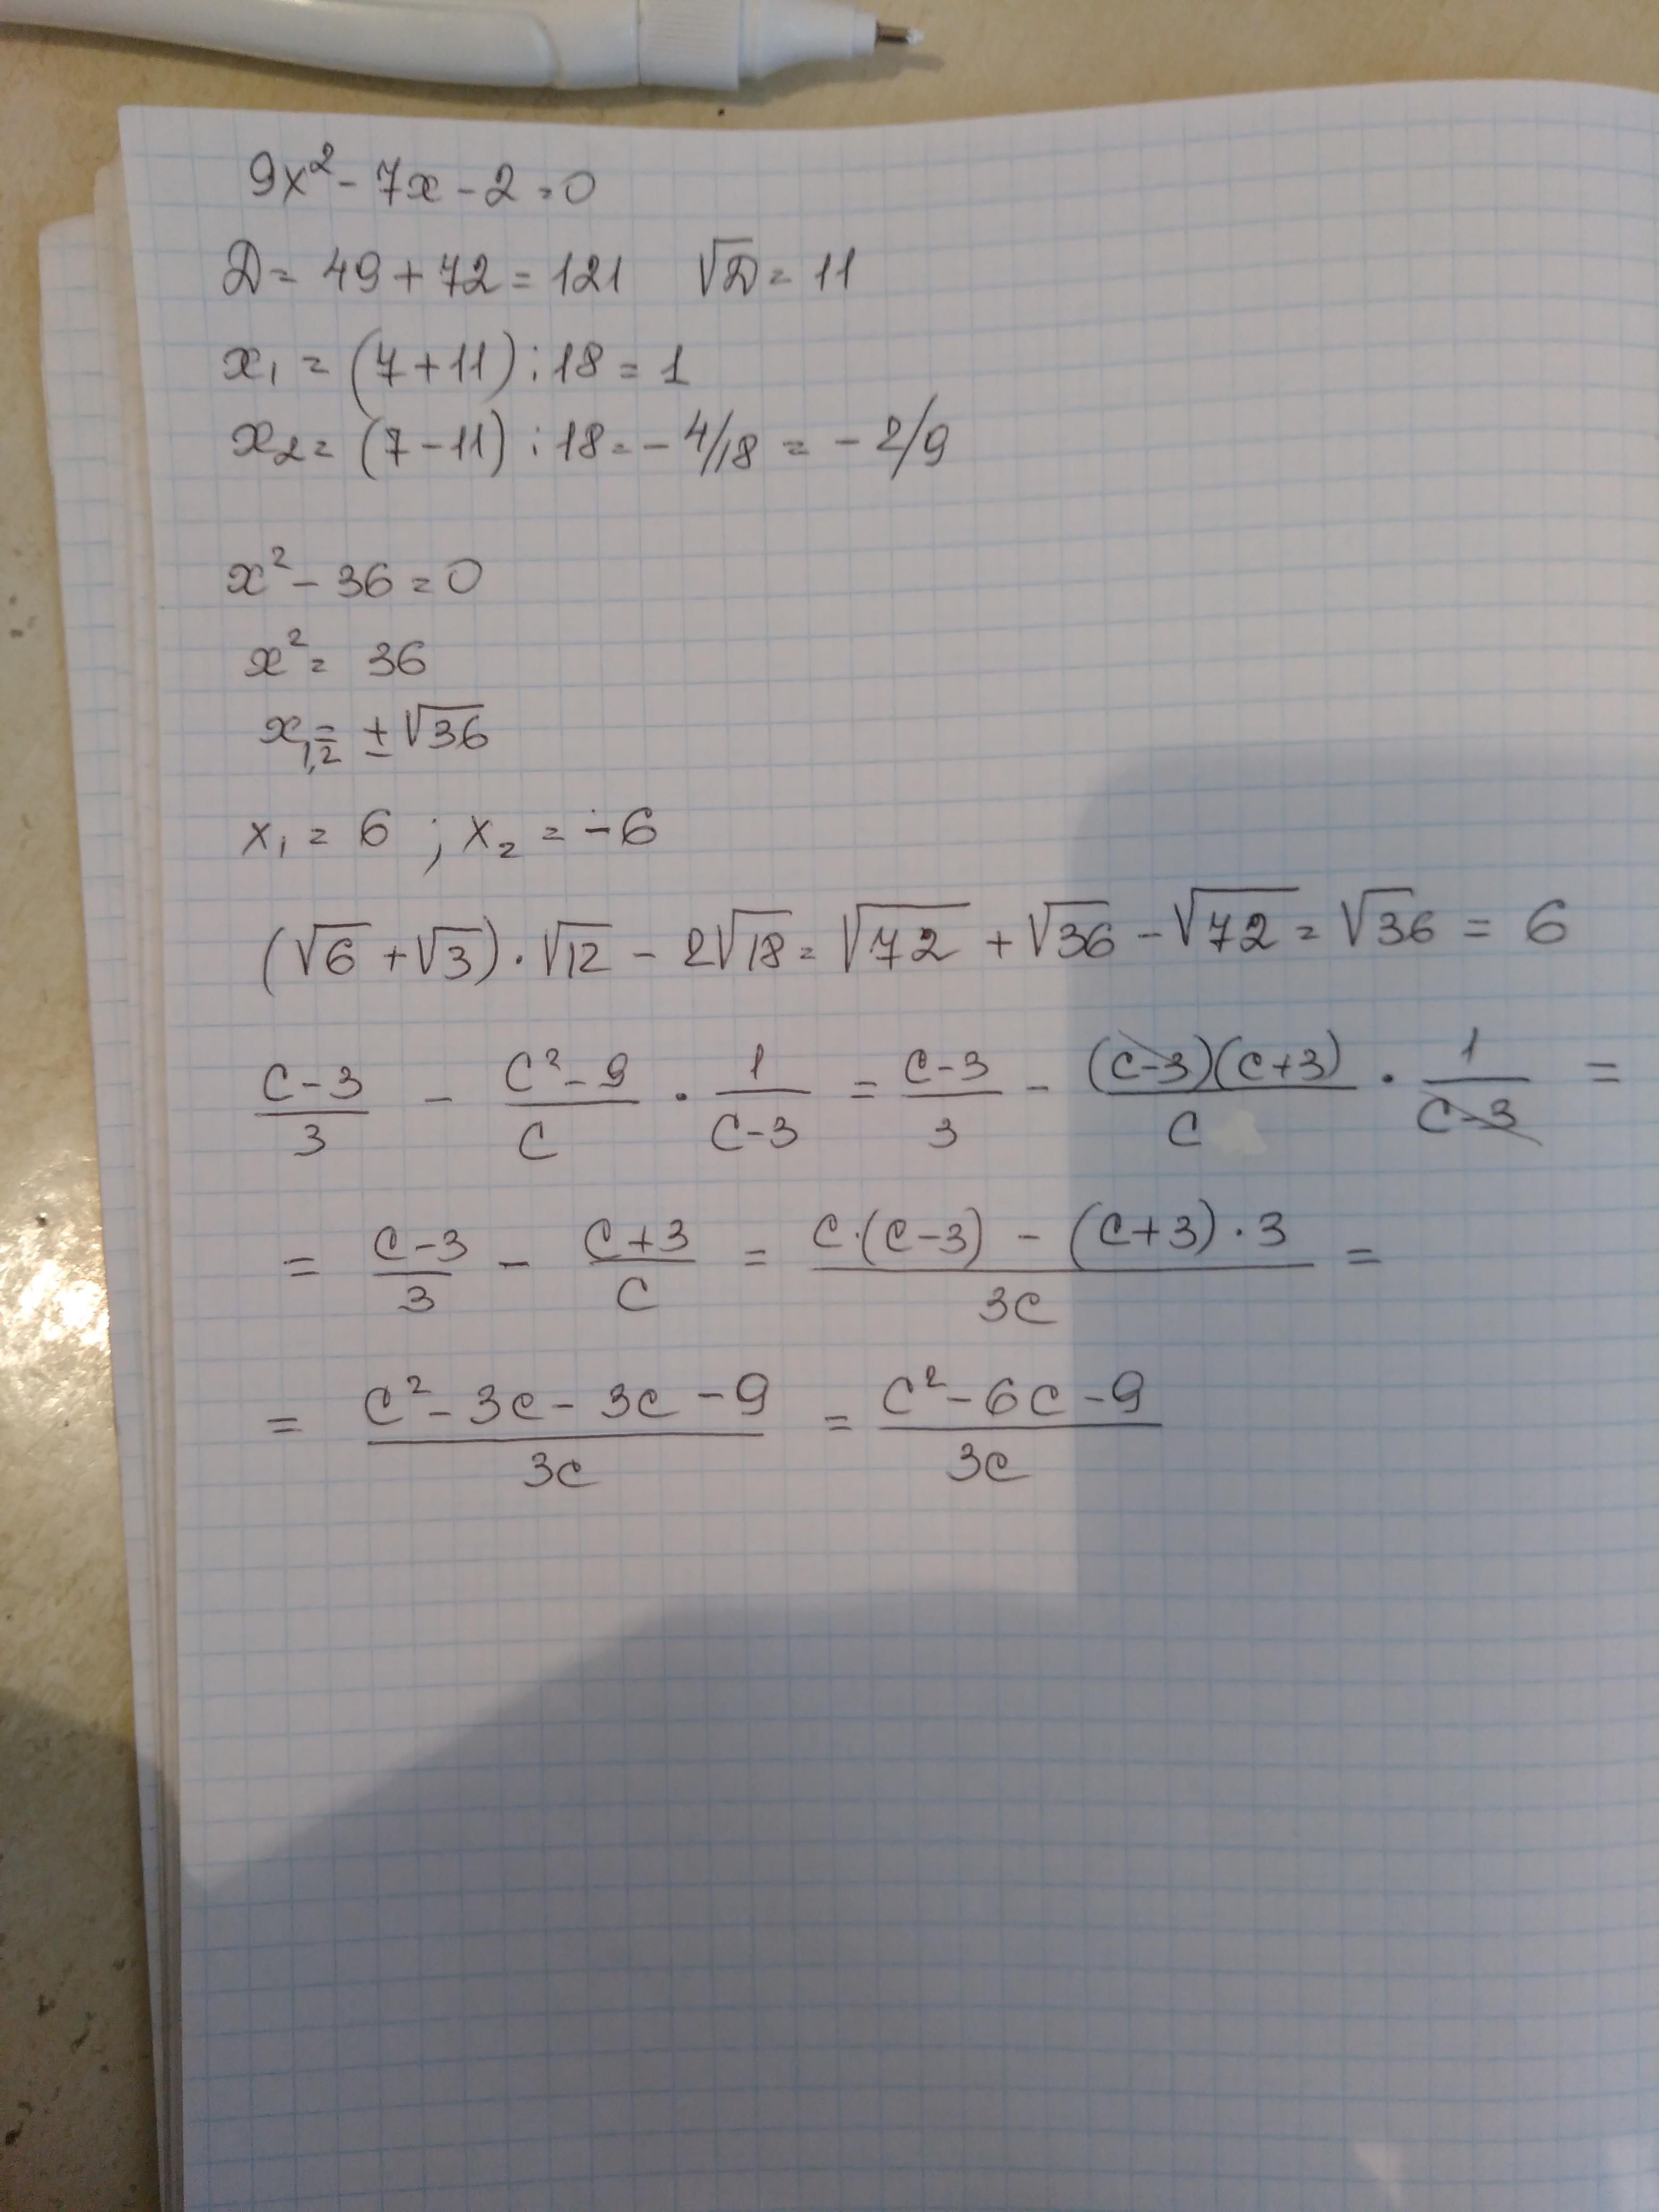 9x² - 7x - 2 = 0
D = 49 + 72 = 121 √D = 11
x₁ = (7 + 11) : 18 = 1
x₂ = (7 - 11) : 18 = - 4/18 = - 2/9
x² - 36 = 0
x² = 36
x₁,₂ = ± √36
x₁ = 6 ; x₂ = -6
(√6 + √3) · √12 - 2√18 = √72 + √36 - √72 = √36 = 6
(c-3)/3 - (c²-9)/c · 1/(c-3) = (c-3)/3 - (c-3)(c+3)/c · 1/(c-3) =
= (c-3)/3 - (c+3)/c = (c·(c-3) - (c+3)·3)/3c =
= (c² - 3c - 3c - 9)/3c = (c² - 6c - 9)/3c